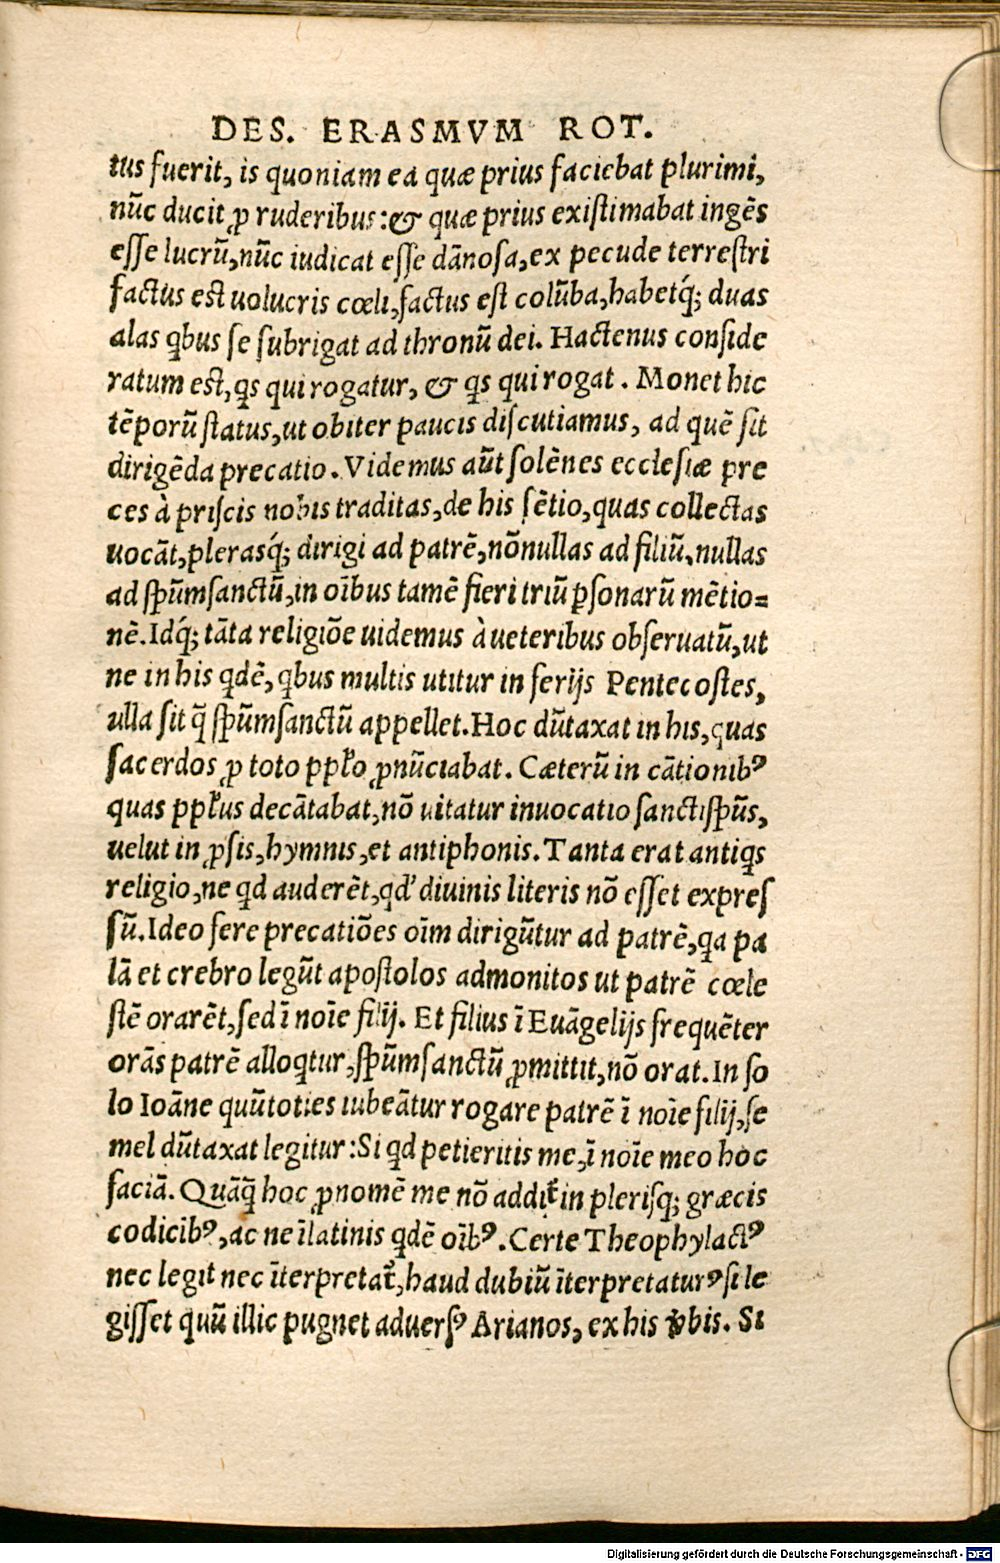 DES. ERASMVM ROT.
tus fuerit, is quoniam ea quæ prius faciebat plurimi,
nūc ducit ꝓ ruderibus: & quæ prius existimabat ingēs
esse lucrū, nūc iudicat esse dānosa, ex pecude terrestri
factus est uolucris cœli, factus est colūba, habetq́; duas
alas qbus se subrigat ad thronū dei. Hactenus conside
ratum est, qs qui rogatur, & qs qui rogat. Monet hic
tēporū status, ut obiter paucis discutiamus, ad quē sit
dirigēda precatio. Videmus aūt solēnes ecclesiæ pre
ces à priscis nobis traditas, de his sētio, quas collectas
uocāt, plerasq́; dirigi ad patrē, nōnullas ad filiū, nullas
ad spūmsanctū, in oībus tamē fieri triū ꝑsonarū mētio=
nē. Idq́; tāta religiōe uidemus à ueteribus obseruatū, ut
ne in his qdē, qbus multis utitur in ferijs Pentecostes,
ulla sit q̄ spūmsanctū appellet. Hoc dūtaxat in his, quas
sacerdos ꝓ toto ppľo ꝓnūciabat. Cæterū in cātionibꝰ
quas ppľus decātabat, nō uitatur inuocatio sanctispūs,
uelut in ꝓsis, hymnis, et antiphonis. Tanta erat antiqs
religio, ne qd auderēt, qď diuinis literis nō esset expres
sū. Ideo fere precatiōes oīm dirigūtur ad patrē, qa pa
lā et crebro legūt apostolos admonitos ut patrē cœle
stē orarēt, sed ī noīe filij. Et filius ī Euāgelijs frequēter
orās patrē alloqtur, spūmsanctū ꝓmittit, nō orat. In so
lo Ioāne quūtoties iubeātur rogare patrē ī noīe filij, se
mel dūtaxat legitur: Si qd petieritis me, ī noīe meo hoc
faciā. Quāq̄ hoc ꝓnomē me nō addiť in plerisq; græcis
codicibꝰ, ac ne ī latinis qdē oībꝰ. Certe Theophylactꝰ
nec legit nec īterpretať, haud dubiū īterpretaturꝰ si le
gisset quū illic pugnet aduersꝰ Arianos, ex his ṽbis. Si
Digitalisierung gefördert durch die Deutsche Forschungsgemeinschaft - DFG